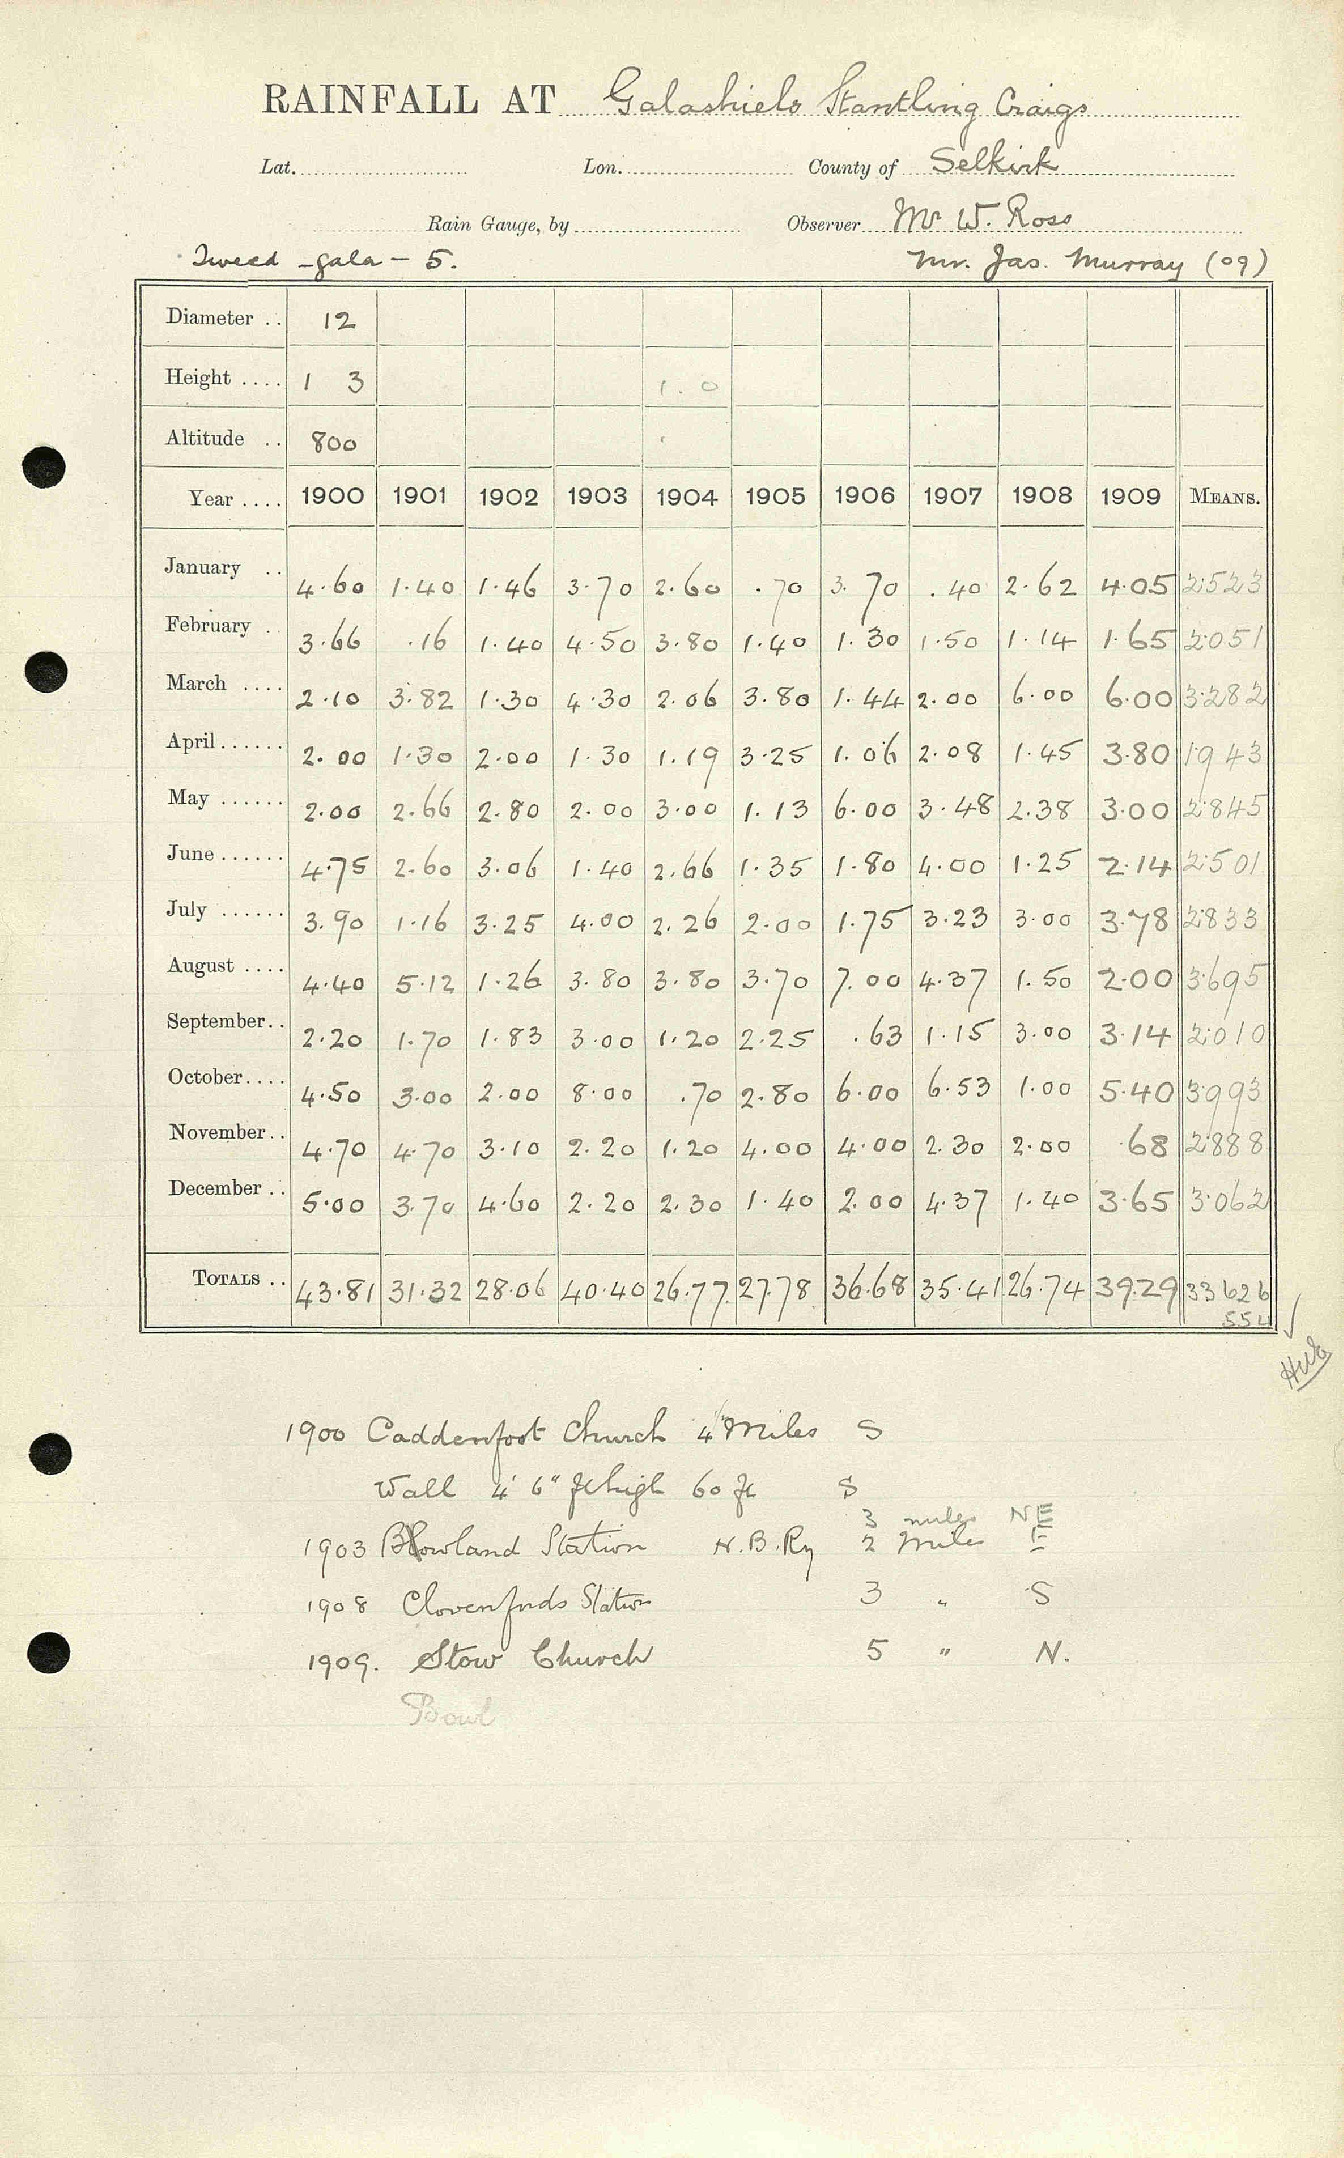 RAINFALL AT Galashiels Stantling Craigs
Lat. Lon. County of Selkirk
Rain Gauge, by Observer Mr W. Ross
Tweed - Gala - 5. Mr. Jas. Murray (09)
Diameter .. 12
Height .... 1 3 1.0
Altitude .. 800
Year .... 1900 1901 1902 1903 1904 1905 1906 1907 1908 1909 MEANS.
January .. 4.60 1.40 1.46 3.70 2.60 .70 3.70 .40 2.62 4.05 2.523
February . 3.66 .16 1.40 4.50 3.80 1.40 1.30 1.50 1.14 1.65 2.051
March .... 2.10 3.82 1.30 4.30 2.06 3.80 1.44 2.00 6.00 6.00 3.282
April...... 2.00 1.30 2.00 1.30 1.19 3.25 1.06 2.08 1.45 3.80 1943
May ...... 2.00 2.66 2.80 2.00 3.00 1.13 6.00 3.48 2.38 3.00 2.845
June...... 4.75 2.60 3.06 1.40 2.66 1.35 1.80 4.00 1.25 2.14 2.501
July ...... 3.90 1.16 3.25 4.00 2.26 2.00 1.75 3.23 3.00 3.78 2.833
August .... 4.40 5.12 1.26 3.80 3.80 3.70 7.00 4.37 1.50 2.00 3.695
September.. 2.20 1.70 1.83 3.00 1.20 2.25 .63 1.15 3.00 3.14 2.010
October.... 4.50 3.00 2.00 8.00 .70 2.80 6.00 6.53 1.00 5.40 3.993
November.. 4.70 4.70 3.10 2.20 1.20 4.00 4.00 2.30 2.00 .68 2.888
December .. 5.00 3.70 4.60 2.20 2.30 1.40 2.00 4.37 1.40 3.65 3.062
TOTALS .. 43.81 31.32 28.06 40.40 26.77 27.78 36.68 35.41 26.74 39.29 33 626
554
1900 Caddenfoot Church 4 Miles S
Wall 4' 6" ft high 60 ft S
3 miles NE
1903 Bowland Station N.B.Ry 2 Miles E
1908 Clovenfords Station 3 " S
1909. Stow Church 5 " N.
Bowl